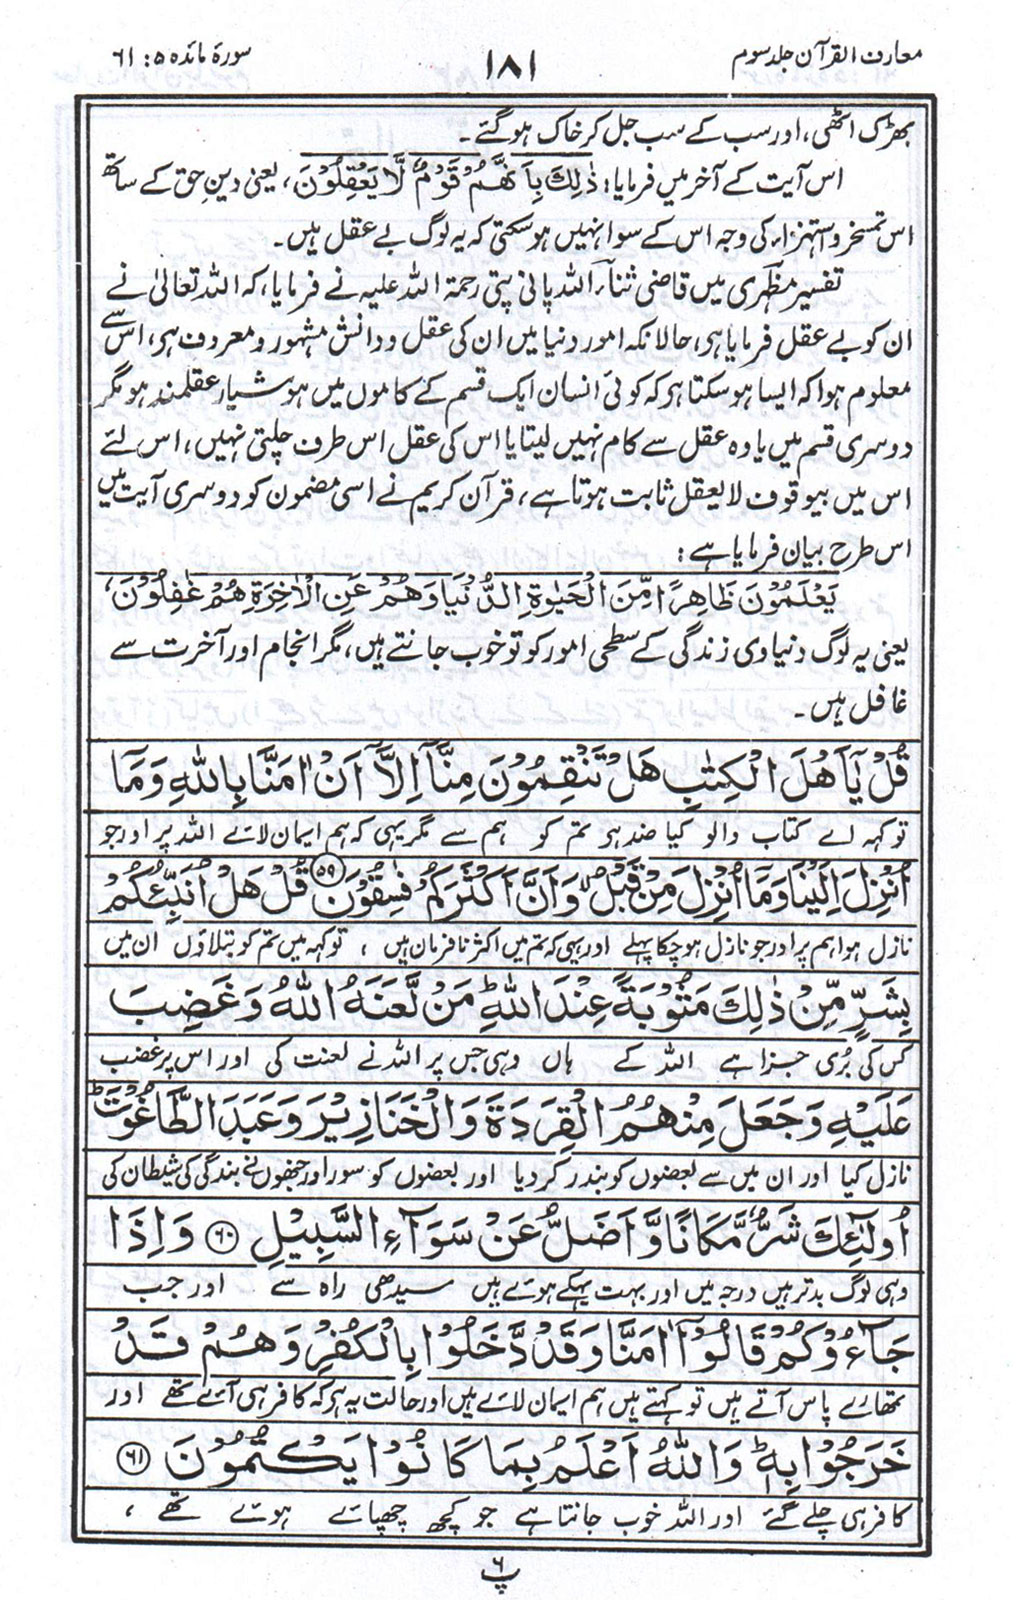 معارف القرآن جلد سوم
۱۸۱
سورۃ مائدہ ۵: ۶۱
بھڑک اٹھی، اور سب کے سب جل کر خاک ہوگئے۔
اس آیت کے آخر میں فرمایا: ذٰلِكَ بِاَنَّهُمْ قَوْمٌ لَّا يَعْقِلُوْنَ، یعنی دین حق کے ساتھ
اس تمسخر و استہزاء کی وجہ اس کے سوا نہیں ہوسکتی کہ یہ لوگ بے عقل ہیں۔
تفسیر مظہری میں قاضی ثناء اللہ پانی پتی رحمۃ اللہ علیہ نے فرمایا، کہ اللہ تعالیٰ نے
ان کو بے عقل فرمایا ہی، حالانکہ امور دنیا میں ان کی عقل و دانش مشہور و معروف ہی، اس سے
معلوم ہوا کہ ایسا ہوسکتا ہی کہ کوئی انسان ایک قسم کے کاموں میں ہوشیار عقلمند ہو مگر
دوسری قسم میں یا وہ عقل سے کام نہیں لیتا یا اس کی عقل اس طرف چلتی نہیں، اس لئے
اس میں بیوقوف لا یعقل ثابت ہوتا ہے، قرآن کریم نے اسی مضمون کو دوسری آیت میں
اس طرح بیان فرمایا ہے:
يَعْلَمُوْنَ ظَاهِرًا مِّنَ الْحَيٰوةِ الدُّنْيَا وَهُمْ عَنِ الْاٰخِرَةِ هُمْ غٰفِلُوْنَ،
یعنی یہ لوگ دنیاوی زندگی کے سطحی امور کو تو خوب جانتے ہیں، مگر انجام اور آخرت سے
غافل ہیں۔
قُلْ يٰٓاَهْلَ الْكِتٰبِ هَلْ تَنْقِمُوْنَ مِنَّآ اِلَّآ اَنْ اٰمَنَّا بِاللّٰهِ وَمَآ
تو کہہ اے کتاب والو کیا ضد ہی تم کو ہم سے مگر یہی کہ ہم ایمان لائے اللہ پر اور جو
اُنْزِلَ اِلَيْنَا وَمَآ اُنْزِلَ مِنْ قَبْلُ ۙ وَاَنَّ اَكْثَرَكُمْ فٰسِقُوْنَ ﴿۵۹﴾ قُلْ هَلْ اُنَبِّئُكُمْ
نازل ہوا ہم پر اور جو نازل ہو چکا پہلے اور یہی کہ تم میں اکثر نافرمان ہیں، تو کہہ میں تم کو بتلاؤں ان میں
بِشَرٍّ مِّنْ ذٰلِكَ مَثُوْبَةً عِنْدَ اللّٰهِ ؕ مَنْ لَّعَنَهُ اللّٰهُ وَغَضِبَ
کس کی بُری جزا ہے اللہ کے ہاں وہی جس پر اللہ نے لعنت کی اور اس پر غضب
عَلَيْهِ وَجَعَلَ مِنْهُمُ الْقِرَدَةَ وَالْخَنَازِيْرَ وَعَبَدَ الطَّاغُوْتَ ؕ
نازل کیا اور ان میں سے بعضوں کو بندر کر دیا اور بعضوں کو سور اور جنھوں نے بندگی کی شیطان کی
اُولٰٓئِكَ شَرٌّ مَّكَانًا وَّاَضَلُّ عَنْ سَوَآءِ السَّبِيْلِ ﴿۶۰﴾ وَاِذَا
وہی لوگ بدتر ہیں درجہ میں اور بہت بہکے ہوئے ہیں سیدھی راہ سے اور جب
جَآءُوْكُمْ قَالُوْٓا اٰمَنَّا وَقَدْ دَّخَلُوْا بِالْكُفْرِ وَهُمْ قَدْ
تمھارے پاس آتے ہیں تو کہتے ہیں ہم ایمان لائے ہیں اور حالت یہ ہی کہ کافر ہی آئے تھے اور
خَرَجُوْا بِهٖ ؕ وَاللّٰهُ اَعْلَمُ بِمَا كَانُوْا يَكْتُمُوْنَ ﴿۶۱﴾
کافر ہی چلے گئے اور اللہ خوب جانتا ہے جو کچھ چھپائے ہوئے تھے،
پ ۶